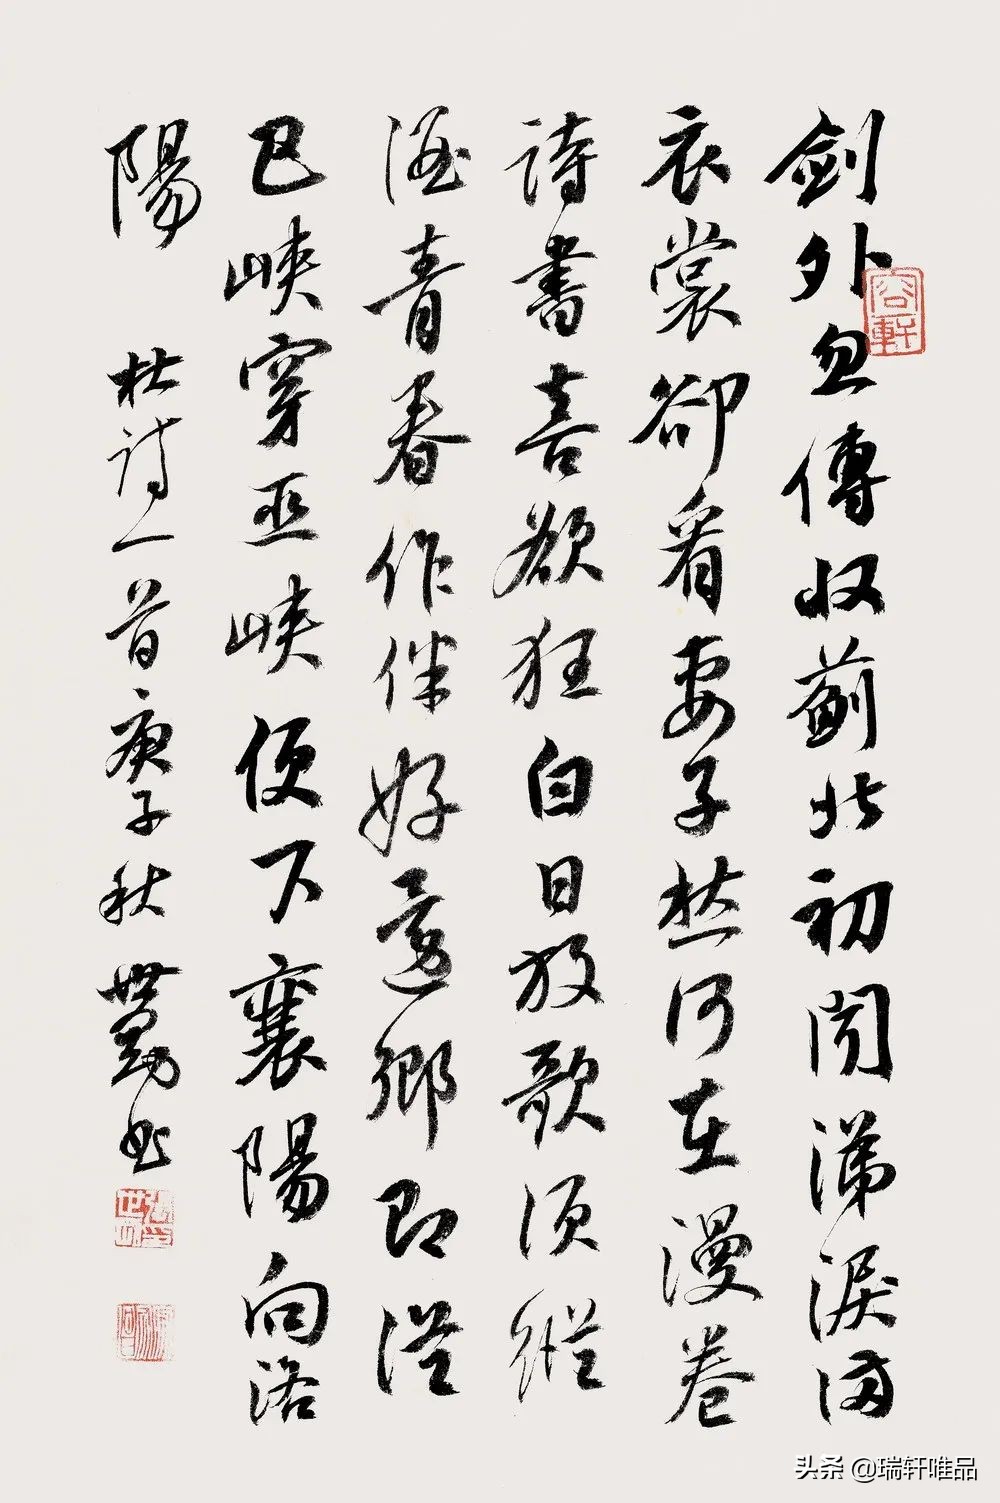 劍外忽傳收薊北初聞涕淚滿
衣裳卻看妻子愁何在漫卷
詩書喜欲狂白日放歌須縱
酒青春作伴好還鄉即從
巴峽穿巫峽便下襄陽向洛
陽
杜詩一首庚子秋世書
容軒
头条 @瑞轩唯品